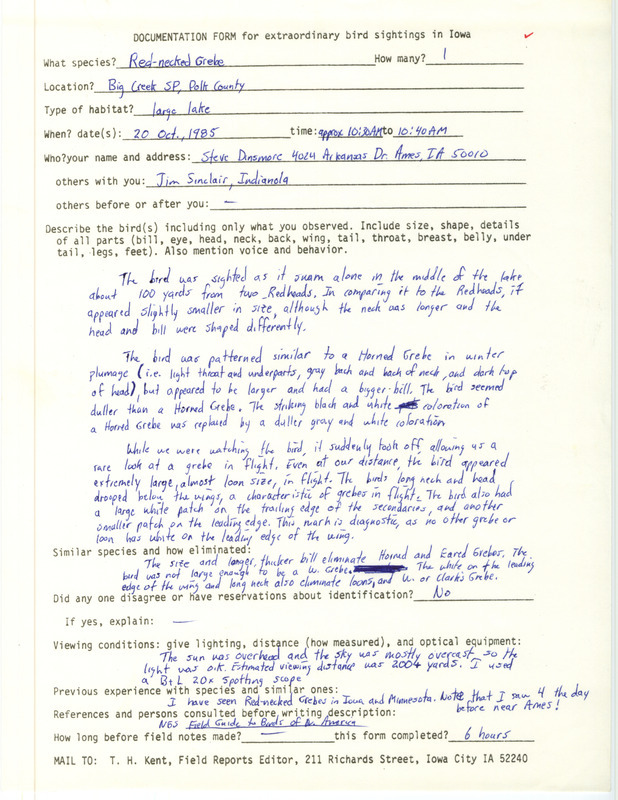 DOCUMENTATION FORM for extraordinary bird sightings in Iowa
What species? Red-necked Grebe How many? 1
Location? Big Creek SP, Polk County
Type of habitat? large lake
When? date(s): 20 Oct., 1985 time: approx 10:30AM to 10:40AM
Who?your name and address: Steve Dinsmore 4024 Arkansas Dr. Ames, IA 50010
others with you: Jim Sinclair, Indianola
others before or after you: —
Describe the bird(s) including only what you observed. Include size, shape, details
of all parts (bill, eye, head, neck, back, wing, tail, throat, breast, belly, under
tail, legs, feet). Also mention voice and behavior.
The bird was sighted as it swam alone in the middle of the lake
about 100 yards from two Redheads. In comparing it to the Redheads, it
appeared slightly smaller in size, although the neck was longer and the
head and bill were shaped differently.
The bird was patterned similar to a Horned Grebe in winter
plumage (i.e. light throat and underparts, gray back and back of neck, and dark top
of head), but appeared to be larger and had a bigger bill. The bird seemed
duller than a Horned Grebe. The striking black and white coloration of
a Horned Grebe was replaced by a duller gray and white coloration.
While we were watching the bird, it suddenly took off, allowing us a
rare look at a grebe in flight. Even at our distance, the bird appeared
extremely large, almost loon size, in flight. The birds long neck and head
drooped below the wings, a characteristic of grebes in flight. The bird also had
a large white patch on the trailing edge of the secondaries, and another
smaller patch on the leading edge. This mark is diagnostic, as no other grebe or
loon has white on the leading edge of the wing.
Similar species and how eliminated:
The size and longer, thicker bill eliminate Horned and Eared Grebes. The
bird was not large enough to be a W. Grebe. The white on the leading
edge of the wing and long neck also eliminate loons, and W. or Clark's Grebe.
Did any one disagree or have reservations about identification? No
If yes, explain: —
Viewing conditions: give lighting, distance (how measured), and optical equipment:
The sun was overhead and the sky was mostly overcast, so the
light was o.k. Estimated viewing distance was 200+ yards. I used
a B+L 20x spotting scope
Previous experience with species and similar ones:
I have seen Red-necked Grebes in Iowa and Minnesota. Note that I saw 4 the day
before near Ames!
References and persons consulted before writing description:
NGS Field Guide to Birds of N. America
How long before field notes made? — this form completed? 6 hours
MAIL TO: T. H. Kent, Field Reports Editor, 211 Richards Street, Iowa City IA 52240